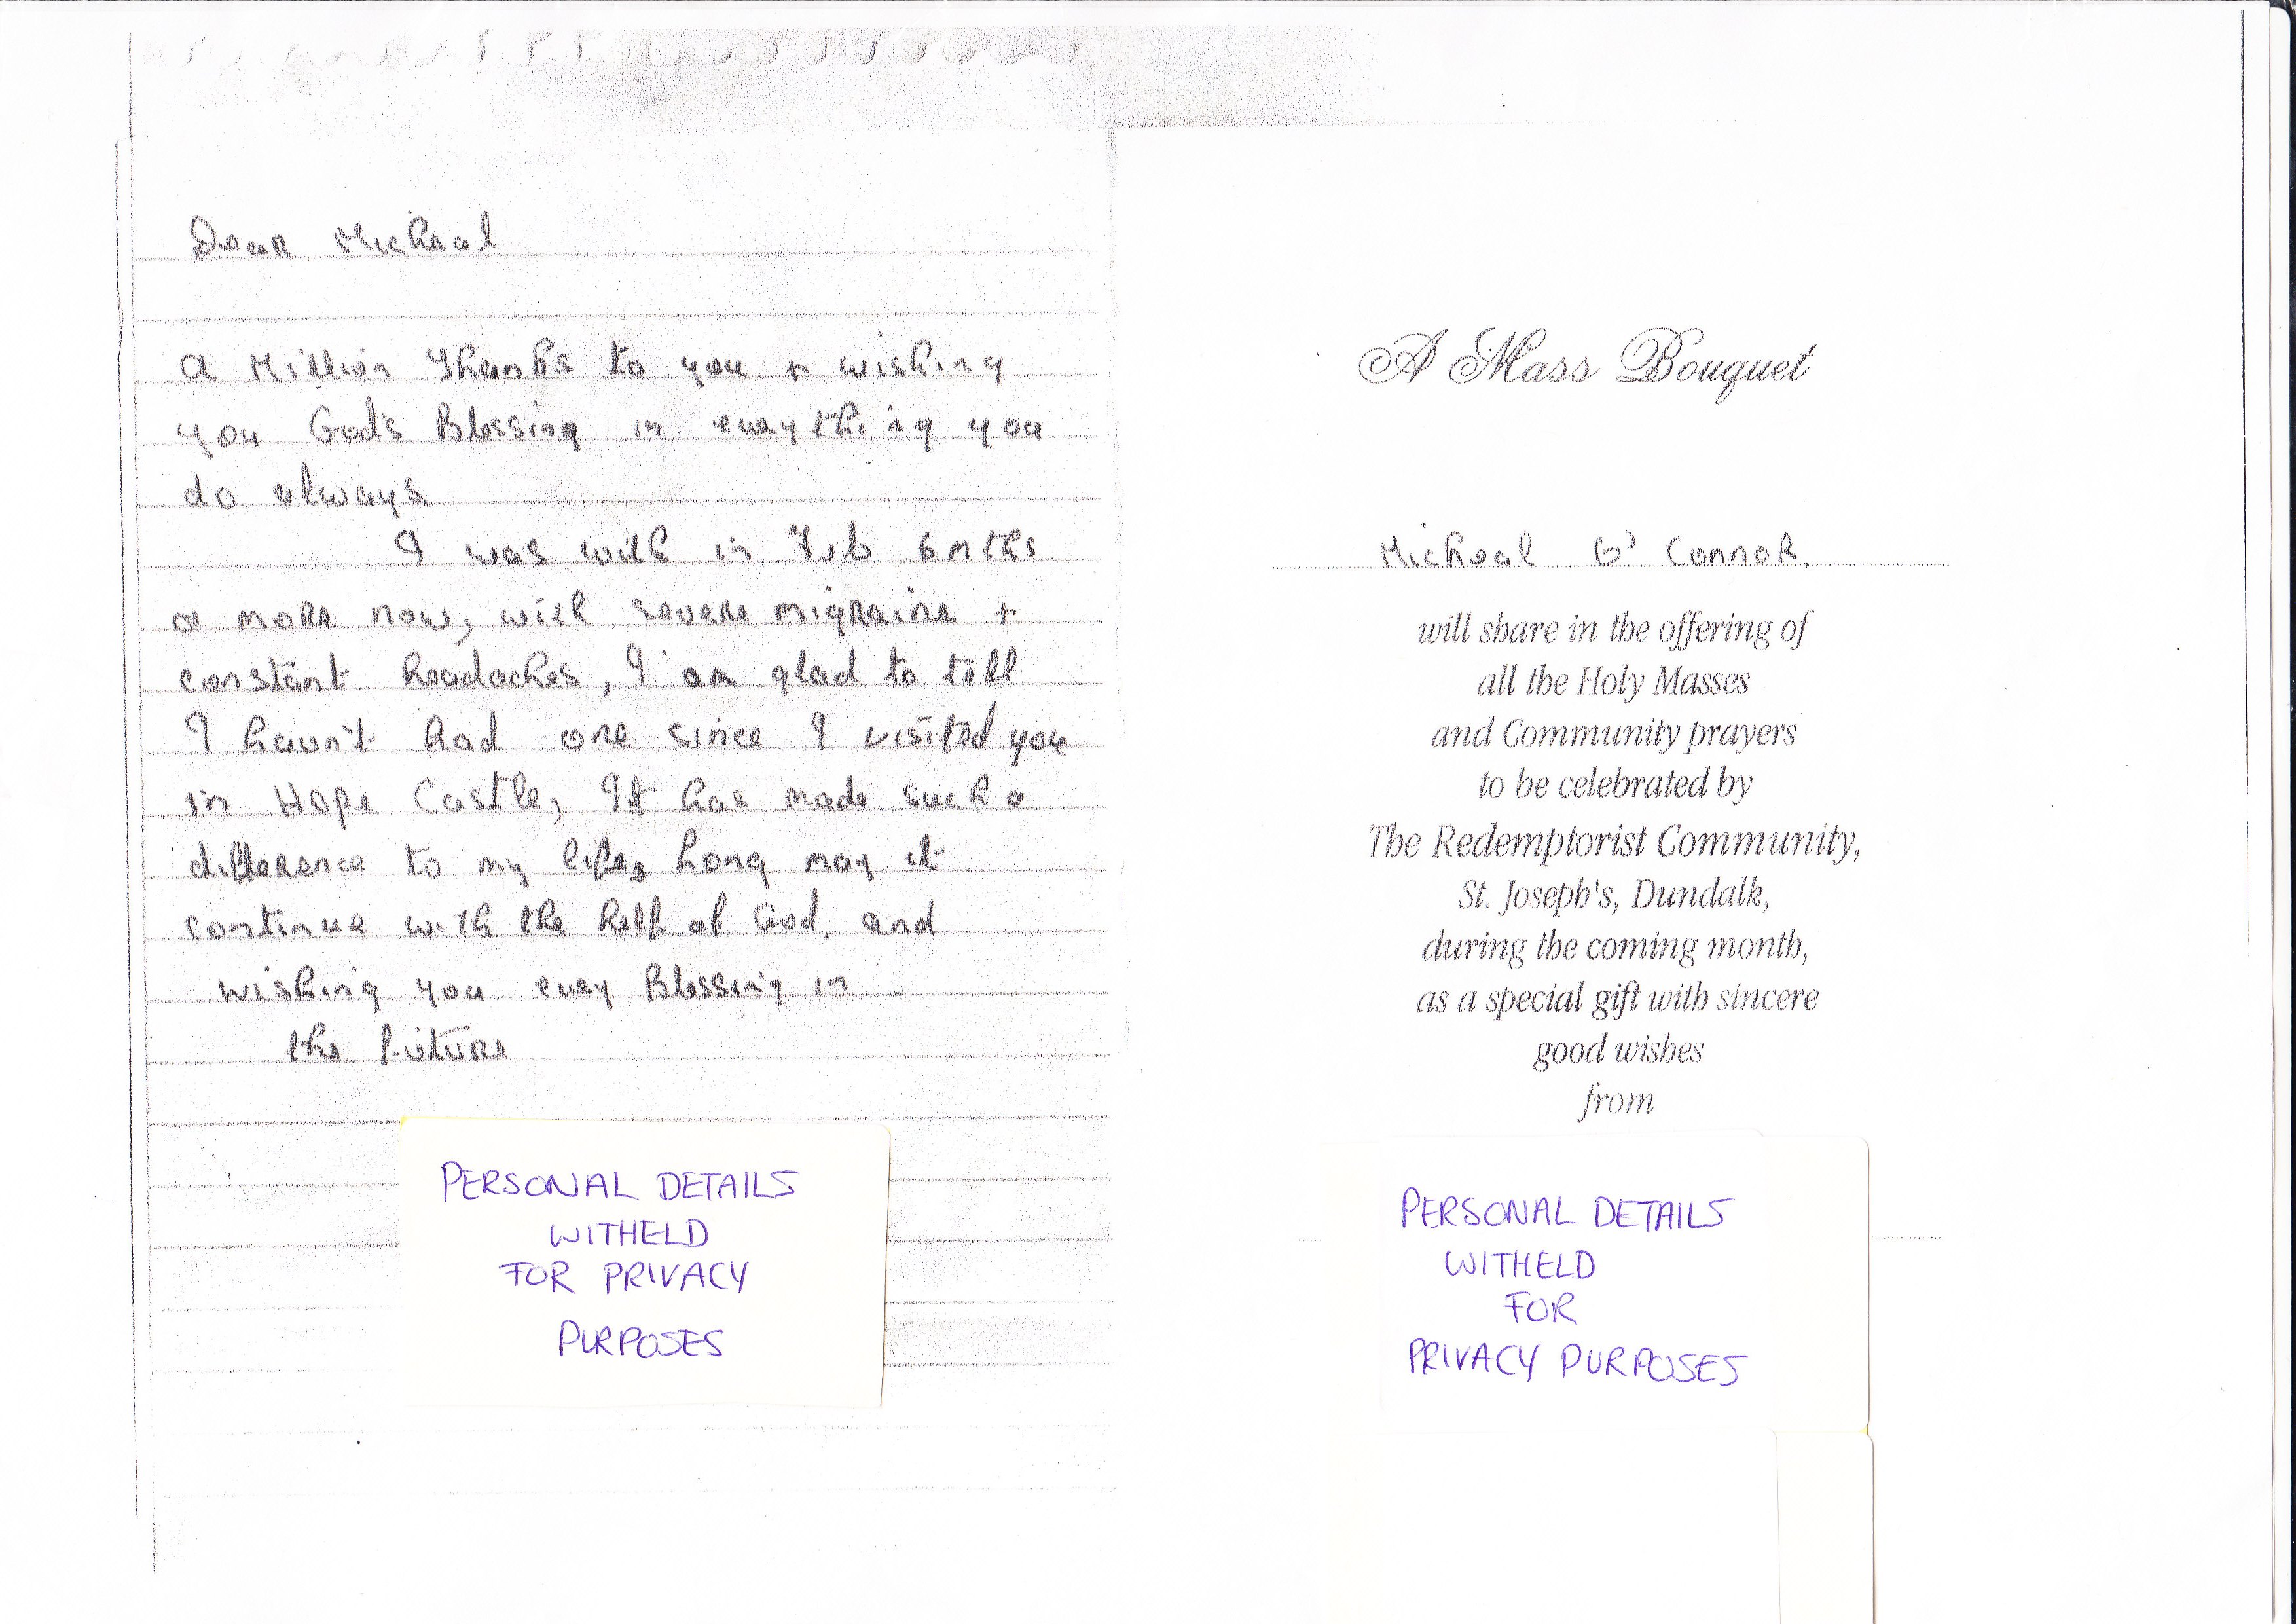 Dear Micheal
A Million Thanks to you + wishing
you God's Blessing in eveything you
do always
I was with in Feb 6 mths
or more now, with severe migraine +
constant headaches, I am glad to tell
I havn't had one since I visited you
in Hope Castle, It has made such a
difference to my life, Long may it
continue with the help of God, and
wishing you evey Blessing in
the future
PERSONAL DETAILS
WITHELD
FOR PRIVACY
PURPOSES
A Mass Bouquet
Micheal O'Connor.
will share in the offering of
all the Holy Masses
and Community prayers
to be celebrated by
The Redemptorist Community,
St. Joseph's, Dundalk,
during the coming month,
as a special gift with sincere
good wishes
from
PERSONAL DETAILS
WITHELD
FOR
PRIVACY PURPOSES